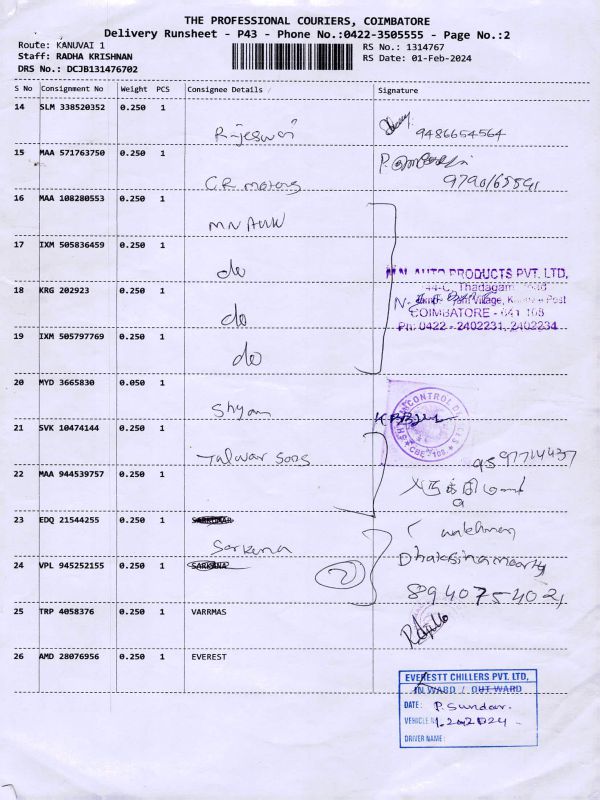 THE PROFESSIONAL COURIERS, COIMBATORE
Delivery Runsheet - P43 - Phone No.:0422-3505555 - Page No.:2
Route: KANUVAI 1
RS No.: 1314767
Staff: RADHA KRISHNAN
RS Date: 01-Feb-2024
DRS No.: DCJB131476702
S No Consignment No Weight PCS Consignee Details Signature
14 SLM 338520352 0.250 1
Rajeswari 9486654564
15 MAA 571763750 0.250 1
C.R. motors 9790165591
16 MAA 108280553 0.250 1
MN Auto
17 IXM 505836459 0.250 1
do
M.N. AUTO PRODUCTS PVT. LTD,
44-C, Thadagam Road
18 KRG 202923 0.250 1
Village, Post
do
COIMBATORE - 641 108
Ph: 0422 - 2402231, 2402234
19 IXM 505797769 0.250 1
do
20 MYD 3665830 0.050 1
Shyam
CONTROL
CBE - 108
21 SVK 10474144 0.250 1
Talwar Sons 9597714437
22 MAA 944539757 0.250 1
23 EDQ 21544255 0.250 1
Sarkana
24 VPL 945252155 0.250 1 SARKANA
2
Dhakshinamoorthy
8940754021
25 TRP 4058376 0.250 1 VARRMAS
26 AMD 28076956 0.250 1 EVEREST
EVERESTT CHILLERS PVT. LTD,
IN WARD / OUT WARD
DATE: P. Sundar.
VEHICLE N 1.2.2024
DRIVER NAME: